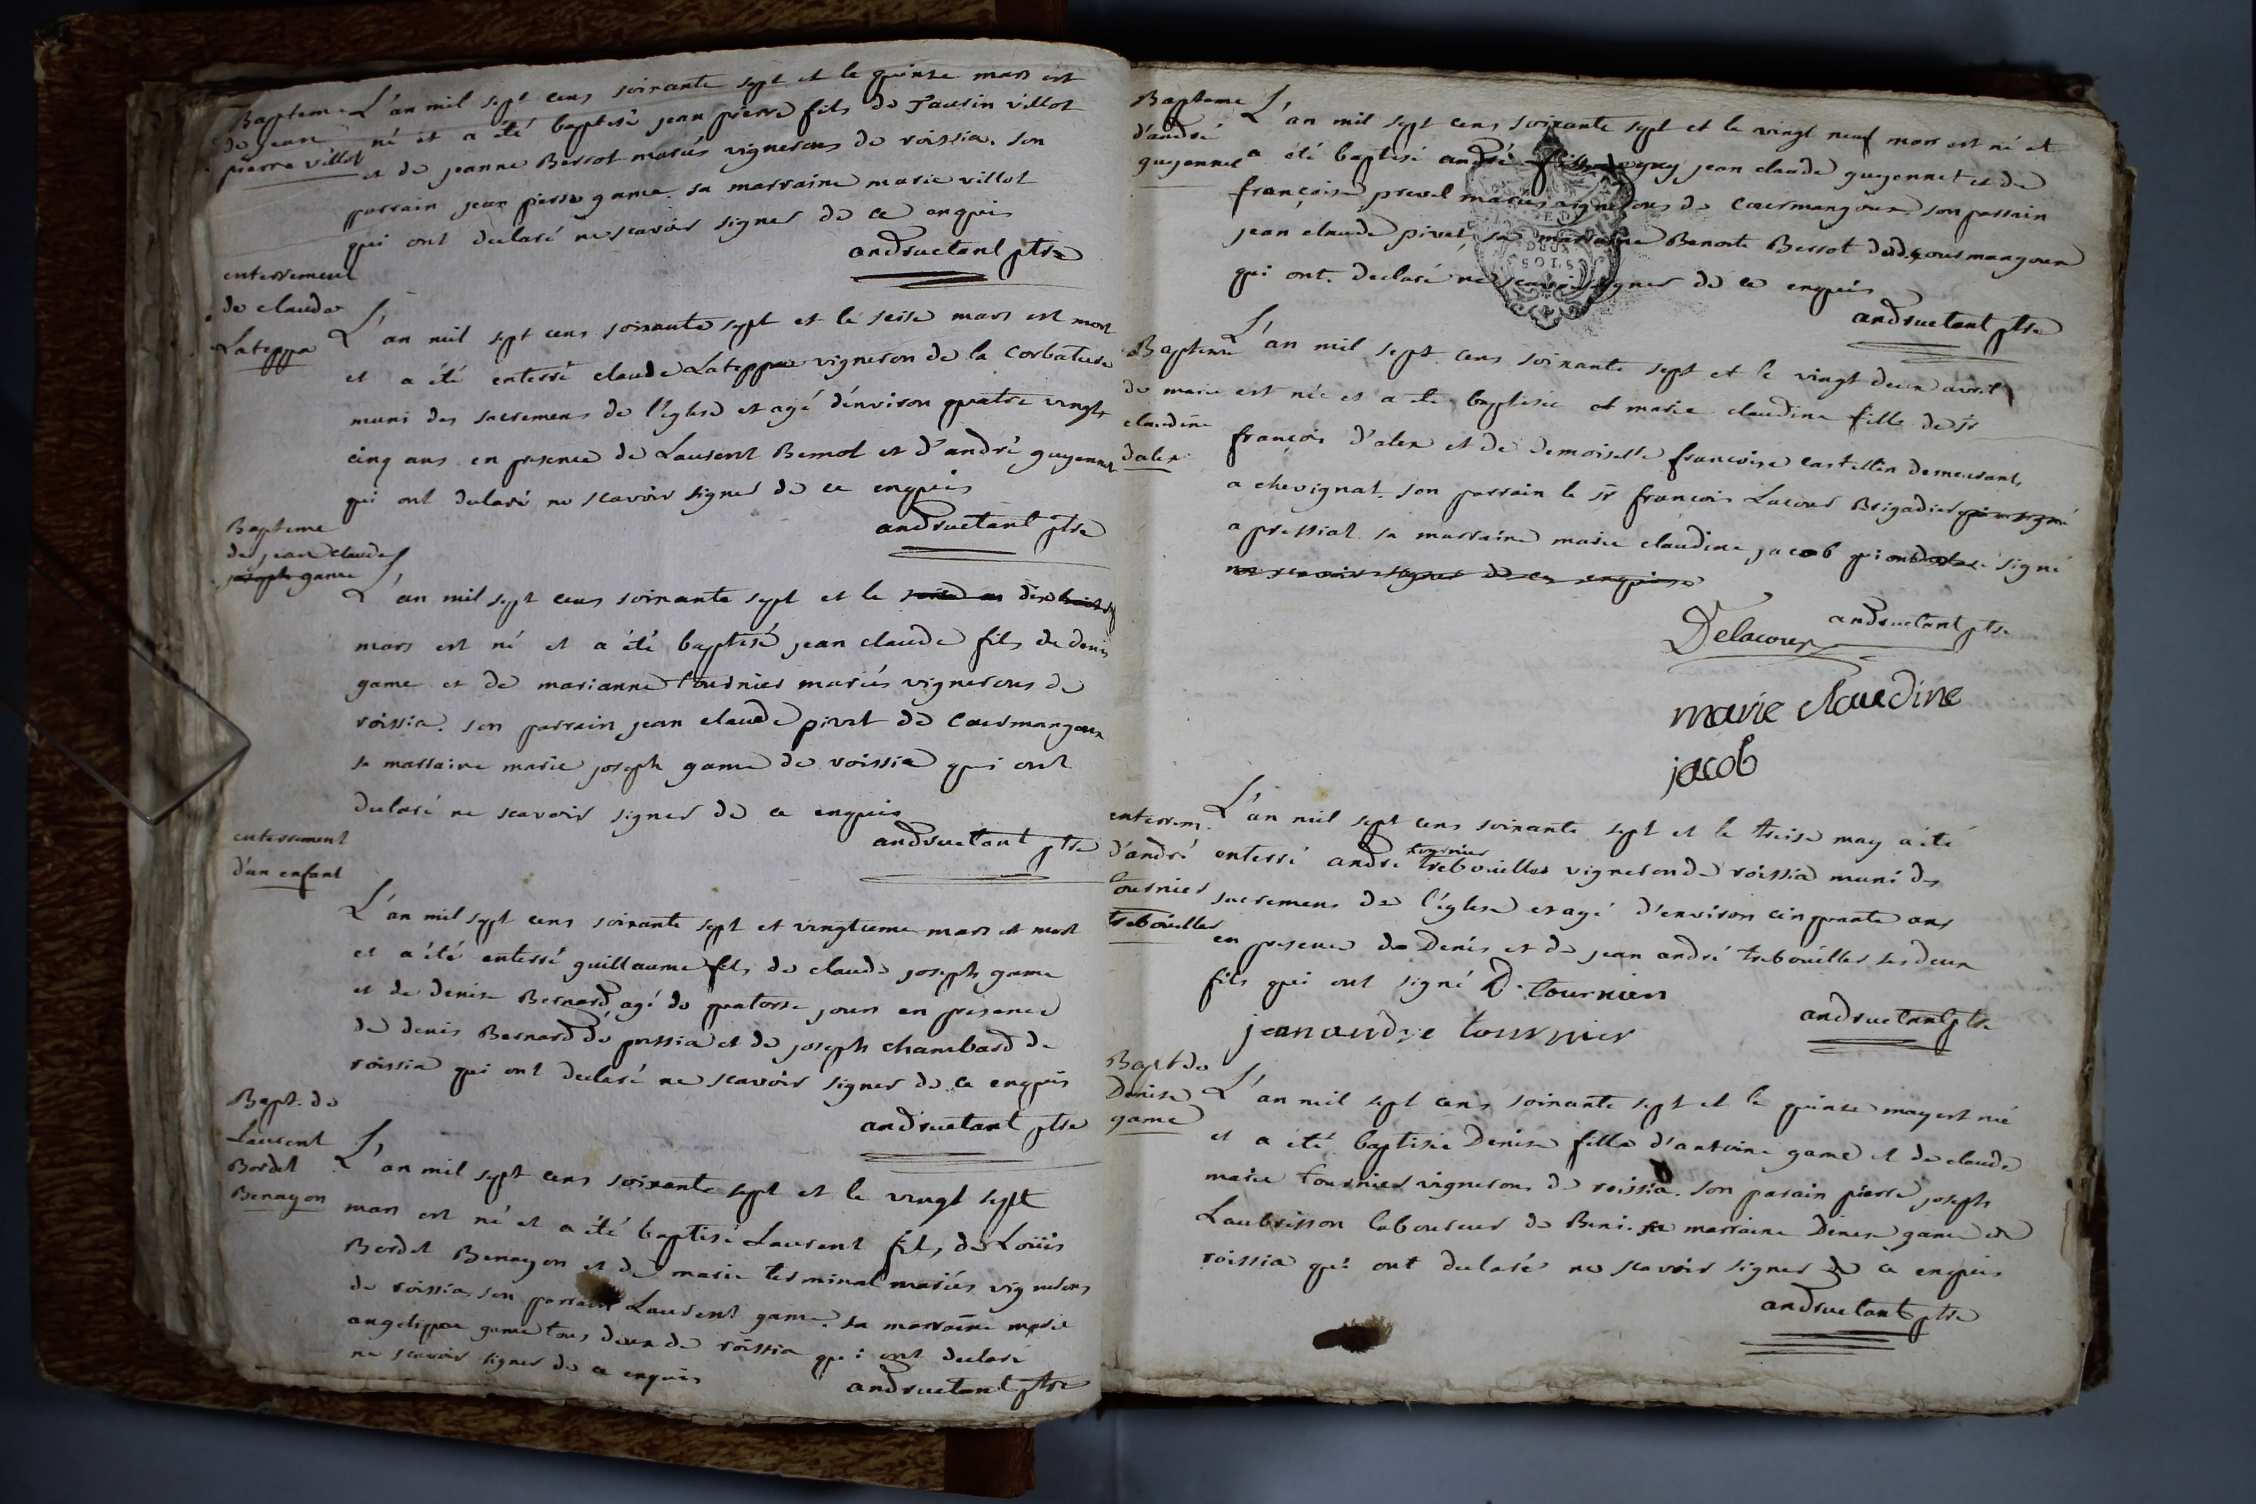 Bapteme
de jean
pierre villot
L'an mil sept cens soixante sept et le quinze mars est
né et a été baptisé jean pierre fils de Tausin villot
et de jeanne Bersot mariés vignerons de roissia. son
parrain jean pierre game. sa marraine marie villot
qui ont declaré ne scavoir signer de ce enquis
andruetant ptre
enterrement
de claude
Lateppa
L'an mil sept cens soixante sept et le seise mars est mort
et a été enterré claude Lateppa vigneron de la Corbatiere
muni des sacremens de l'eglise et agé d'environ quatre vingt
cinq ans en presence de Laurent Bemol et d'andré guyennet
qui ont declaré ne scavoir signer de ce enquis
andruetant ptre
Bapteme
de jean claude
joseph game
L'an mil sept cens soixante sept et le dix
mars est né et a été baptisé jean claude fils de denis
game et de marianne tournier mariés vignerons de
roissia. son parrain jean claude pivet de Coursmangoux
sa marraine marie joseph game de roissia qui ont
declaré ne scavoir signer de ce enquis
andruetant ptre
enterrement
d'un enfant
L'an mil sept cens soixante sept et vingtieme mars est mort
et a été enterré guillaume fils de claude joseph game
et de denise Bernard agé de quatorse jours en presence
de denis Bernard de pressia et de joseph chambard de
roissia qui ont declaré ne scavoir signer de ce enquis
andruetant ptre
Bapt. de
Laurent
Bordet
Benayon
L'an mil sept cens soixante sept et le vingt sept
mars est né et a été baptisé Laurent fils de Loüis
Bordet Benayon et de marie terminal mariés vignerons
de roissia, son parrain Laurent game. sa marraine marie
angelique game tous deux de roissia qui ont declaré
ne scavoir signer de ce enquis
andruetant ptre
Bapteme
d'andré
guyennet
L'an mil sept cens soixante sept et le vingt neuf mars est né et
a été baptisé andré jean claude guyennet et de
françoise prevel mariés vignerons de Coursmangoux, son parrain
jean claude pivet, sa marraine Benoite Bersot dud. Cousmangoux
qui ont declaré ne scavoir signer de ce enquis
andruetant ptre
Bapteme
de marie
claudine
dalex
L'an mil sept cens soixante sept et le vingt deux avril
est née et a été baptisée et marie claudine fille de sr
françois d'alex et de demoiselle françoise castellin demeurant
a chevignat. son parrain le sr françois Lacour Brigadier qui a signé
a pressiat sa marraine marie claudine jacob qui ont declaré signé
ne scavoir signer de ce enquise
andruetant ptre
Delacour
marie claudine
jacob
enterrem.
d'andré
tournier
trebouiller
L'an mil sept cens soixante sept et le treise may a été
enterré andré tournier trebouiller vigneron de roissia muni des
sacremens de l'église et agé d'environ cinquante ans
en presence de Denis et de jean andré trebouiller ses deux
fils qui ont signé D. tournier
andruetant ptre
jean andre tournier
Bapt de
Denise
game
L'an mil sept cens soixante sept et le quinze may est née
et a été baptisée Denise fille d'antoine game et de claude
marie tournier vignerons de roissia. son parain pierre joseph
Laubrisson laboureur de Beni. sa marraine Denise game de
roissia qui ont declaré ne scavoir signer de ce enquis
andruetant ptre